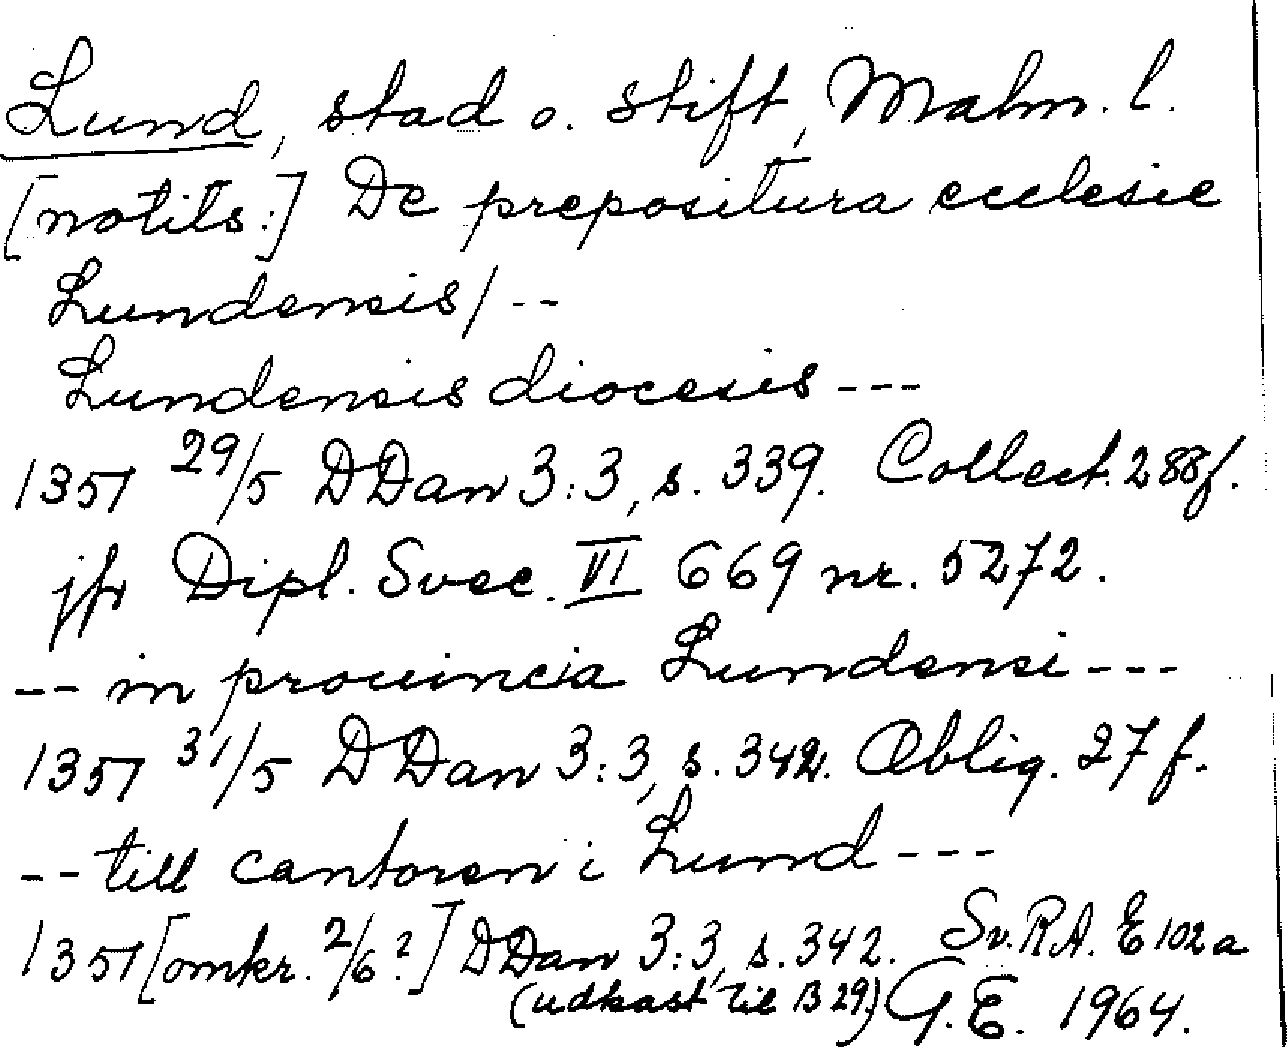 Lund, stad o. stift, Malm. l.
[notits:] De prepositura ecclesie
Lundensis/--
Lundensis diocesis---
1351 29/5 DDan 3:3, s. 339. Collect. 288f.
jfr Dipl. Svec. VI 669 nr. 5272.
-- in prouincia Lundensi---
1351 31/5 DDan 3:3, s. 342. Oblig. 27 f.
-- till cantoren i Lund---
1351 [omkr. 2/6?] DDan 3:3, s. 342. Sv. R.A. E 102 a
(udkast til B 29) G.E. 1964.